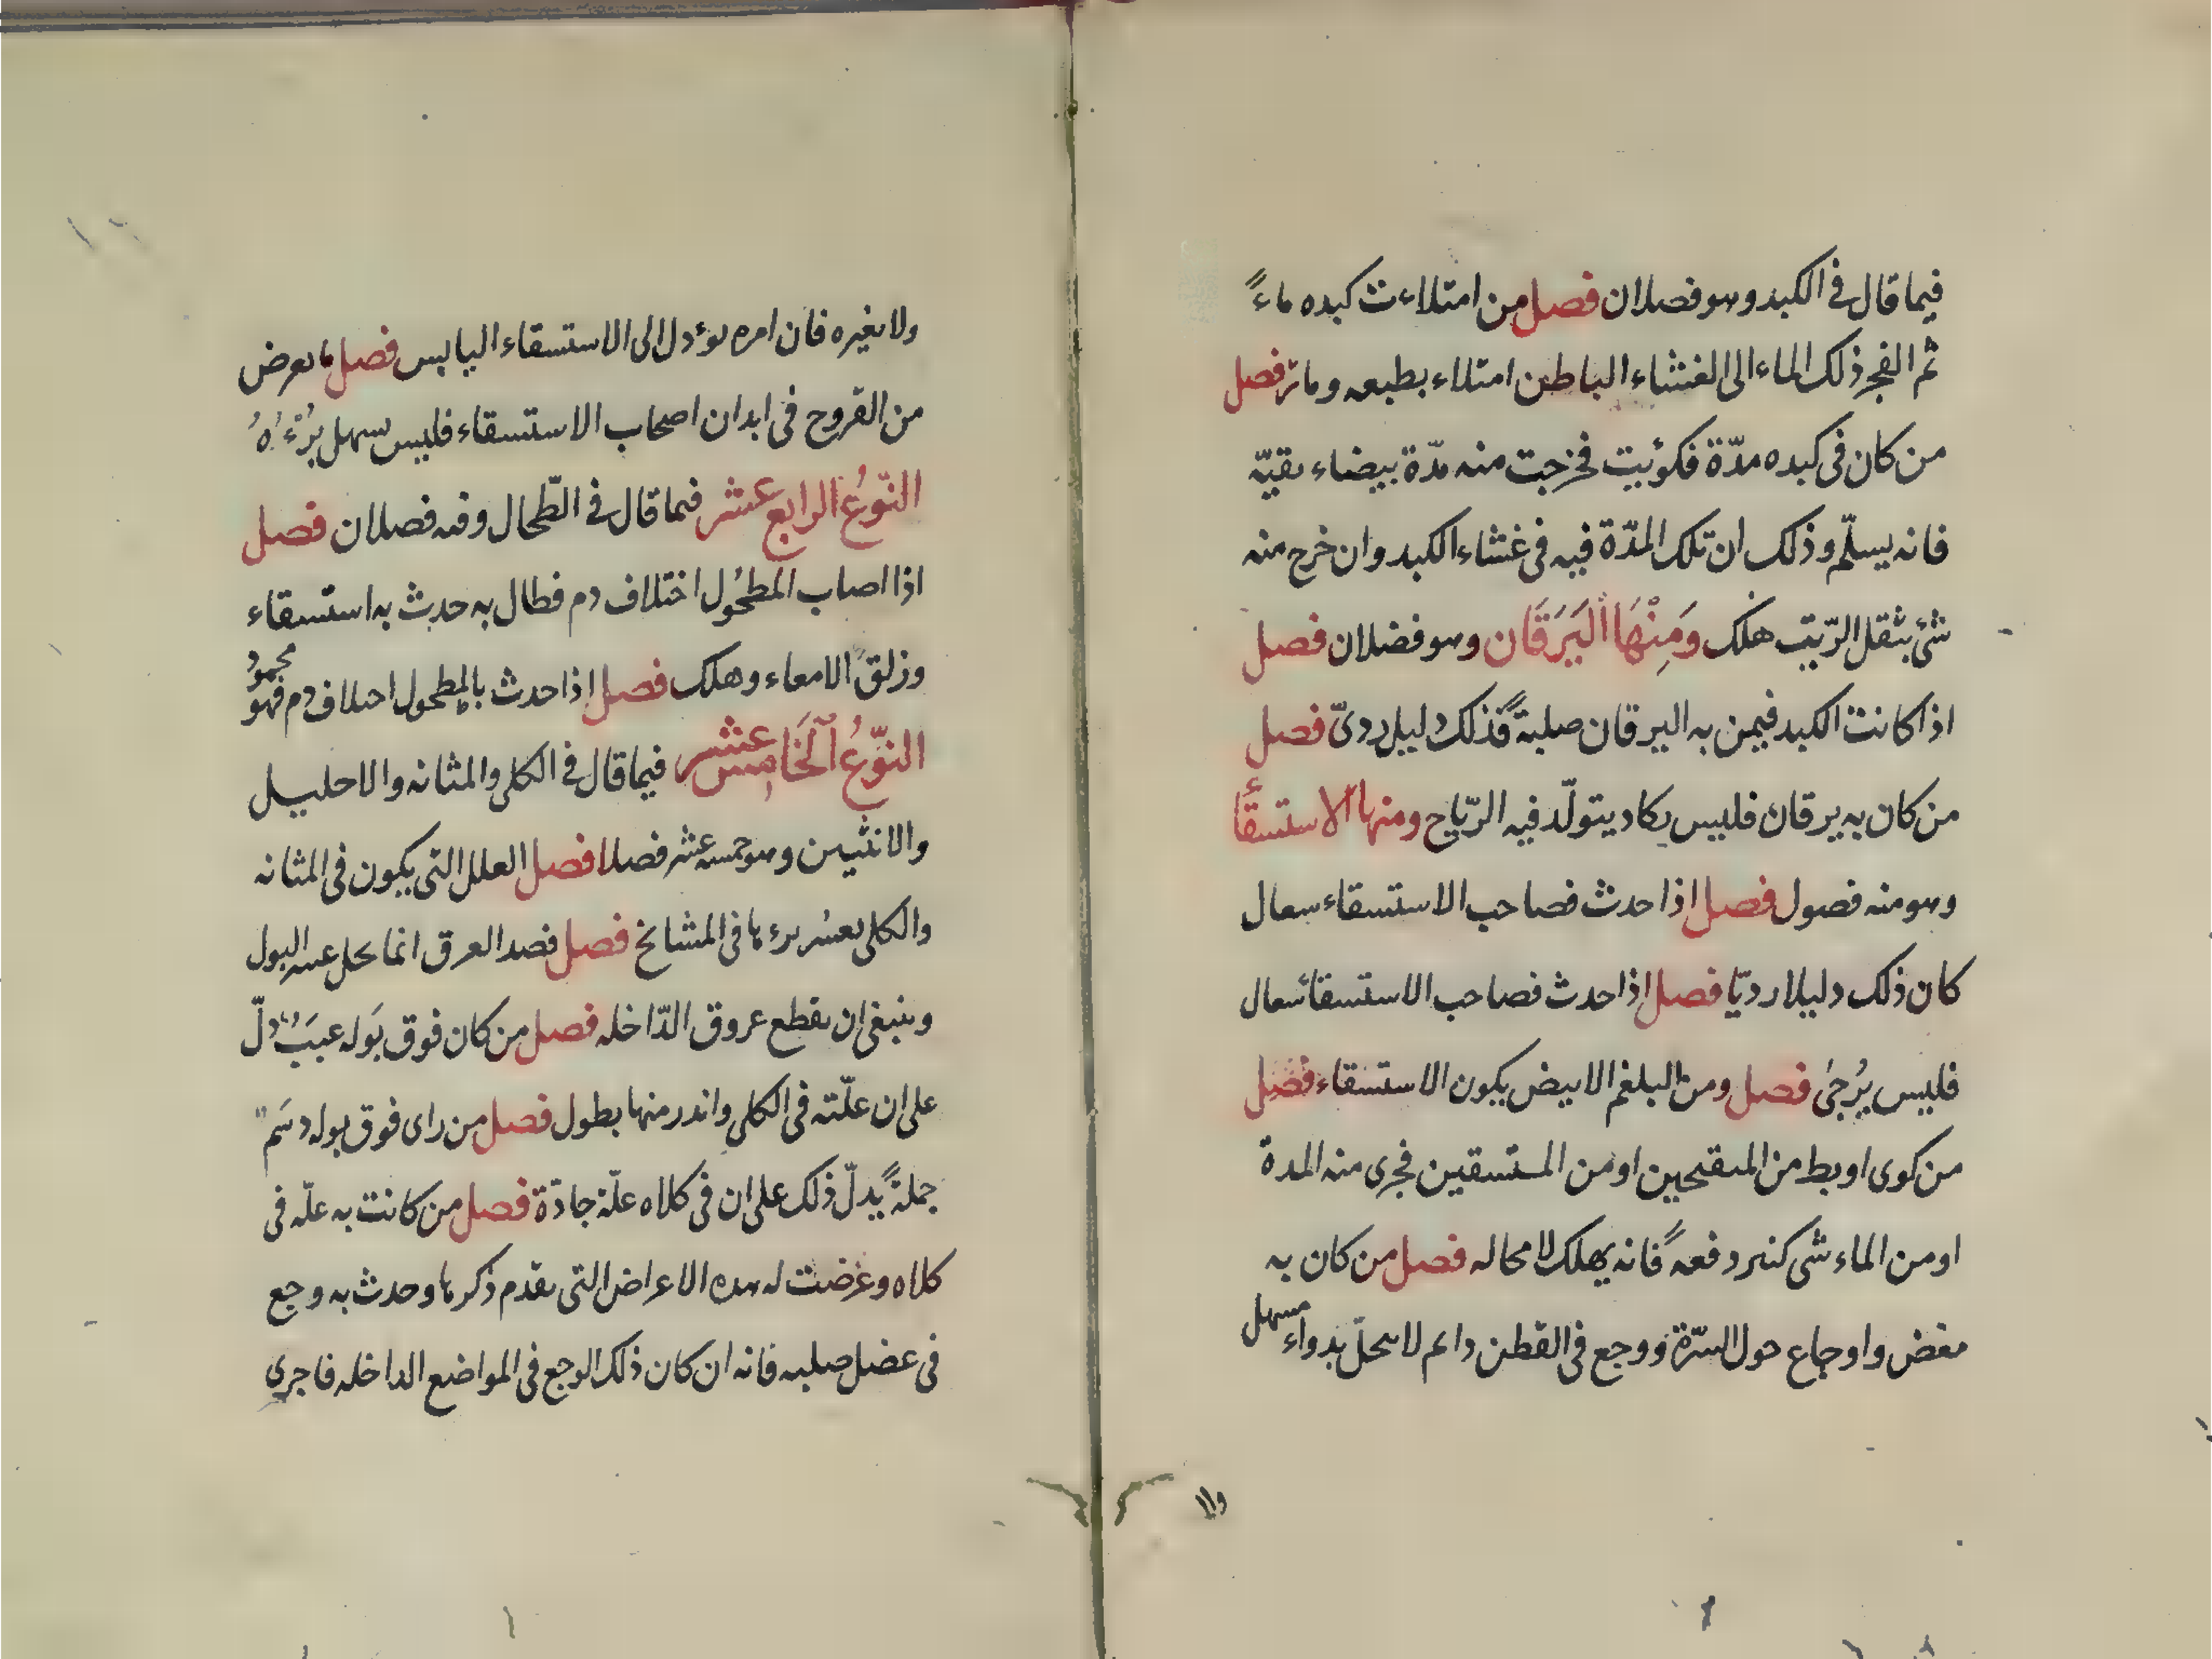 فيما قال في الكبد وهو فصلان فصل من امتلاءت كبده ماءً
ثم الفجر ذلك الماء الى الغشاء الباطن امتلاء بطبعه وماتر فصل
من كان فى كبده مدّة فكوُيت فخرجت منه مدّة بيضاء نقيّه
فانه يسلّم وذلك ان تلك المدّة فيه فى غشاء الكبد وان خرج منه
شئ بثقل الرّيت هلك وَمِنْهَا اليَرَقَان وهو فضلان فصل
اذا كانت الكبد فيمن به اليرقان صلبةً فذلك دليل ردىّ فصل
من كان به يرقان فليس يكاد يتولّد فيه الرّياح ومنها الاستسقاء
وهو منه فصول فصل اذا حدث فصاحب الاستسقاء سعال
كان ذلك دليلا رديّا فصل اذا حدث فصاحب الاستسقا سعال
فليس يُرجىٰ فصل ومن البلغم الابيض يكون الاستسقاء فصل
من كوى او بط من المنقحين او من المستسقين فجرى منه المدة
او من الماء شى كثير دفعهً فانه يهلك لا محاله فصل من كان به
مغض واوجاع حول السّرّة ووجع فى القطن دائم لا يحلّ بدواء مسهل
ولا بغيره فان امره يوءدل الى الاستسقاء اليابس فصل ما يعرض
من القروح فى ابدان اصحاب الاستسقاء فليس يسهل بُرْءُهُ
النّوعُ الرابع عشر فيما قال فى الطّحال وفيه فصلان فصل
اذا اصاب المطحُول اختلاف دم فطال به حدث به استسقاء
وزلق الامعاء وهلك فصل اذا حدث بالمطحول اختلاف دم فهو محمودُ
النّوعُ الخَامِس عشر فيما قال فى الكلى والمثانه والاحليل
والانثيين وهو خمسه عشر فصلا فصل العلل التى يكون فى المثانه
والكلى يعسُر برءها فى المشايخ فصل فصد العرق انما يحل عسر البول
وينبغى ان يقطع عروق الدّاخله فصل من كان فوق بَوله عبَبُ دلّ
على ان علّته فى الكلى واندر منها بطول فصل من راى فوق بوله دسَم
جملةً يدلّ ذلك على ان فى كلاه علّة حادّة فصل من كانت به علّه فى
كلاه وعرضت له هذه الاعراض التى يقدم ذكرها وحدث به وجع
فى عضل صلبه فانه ان كان ذلك الوجع فى المواضع الداخله فاجرى